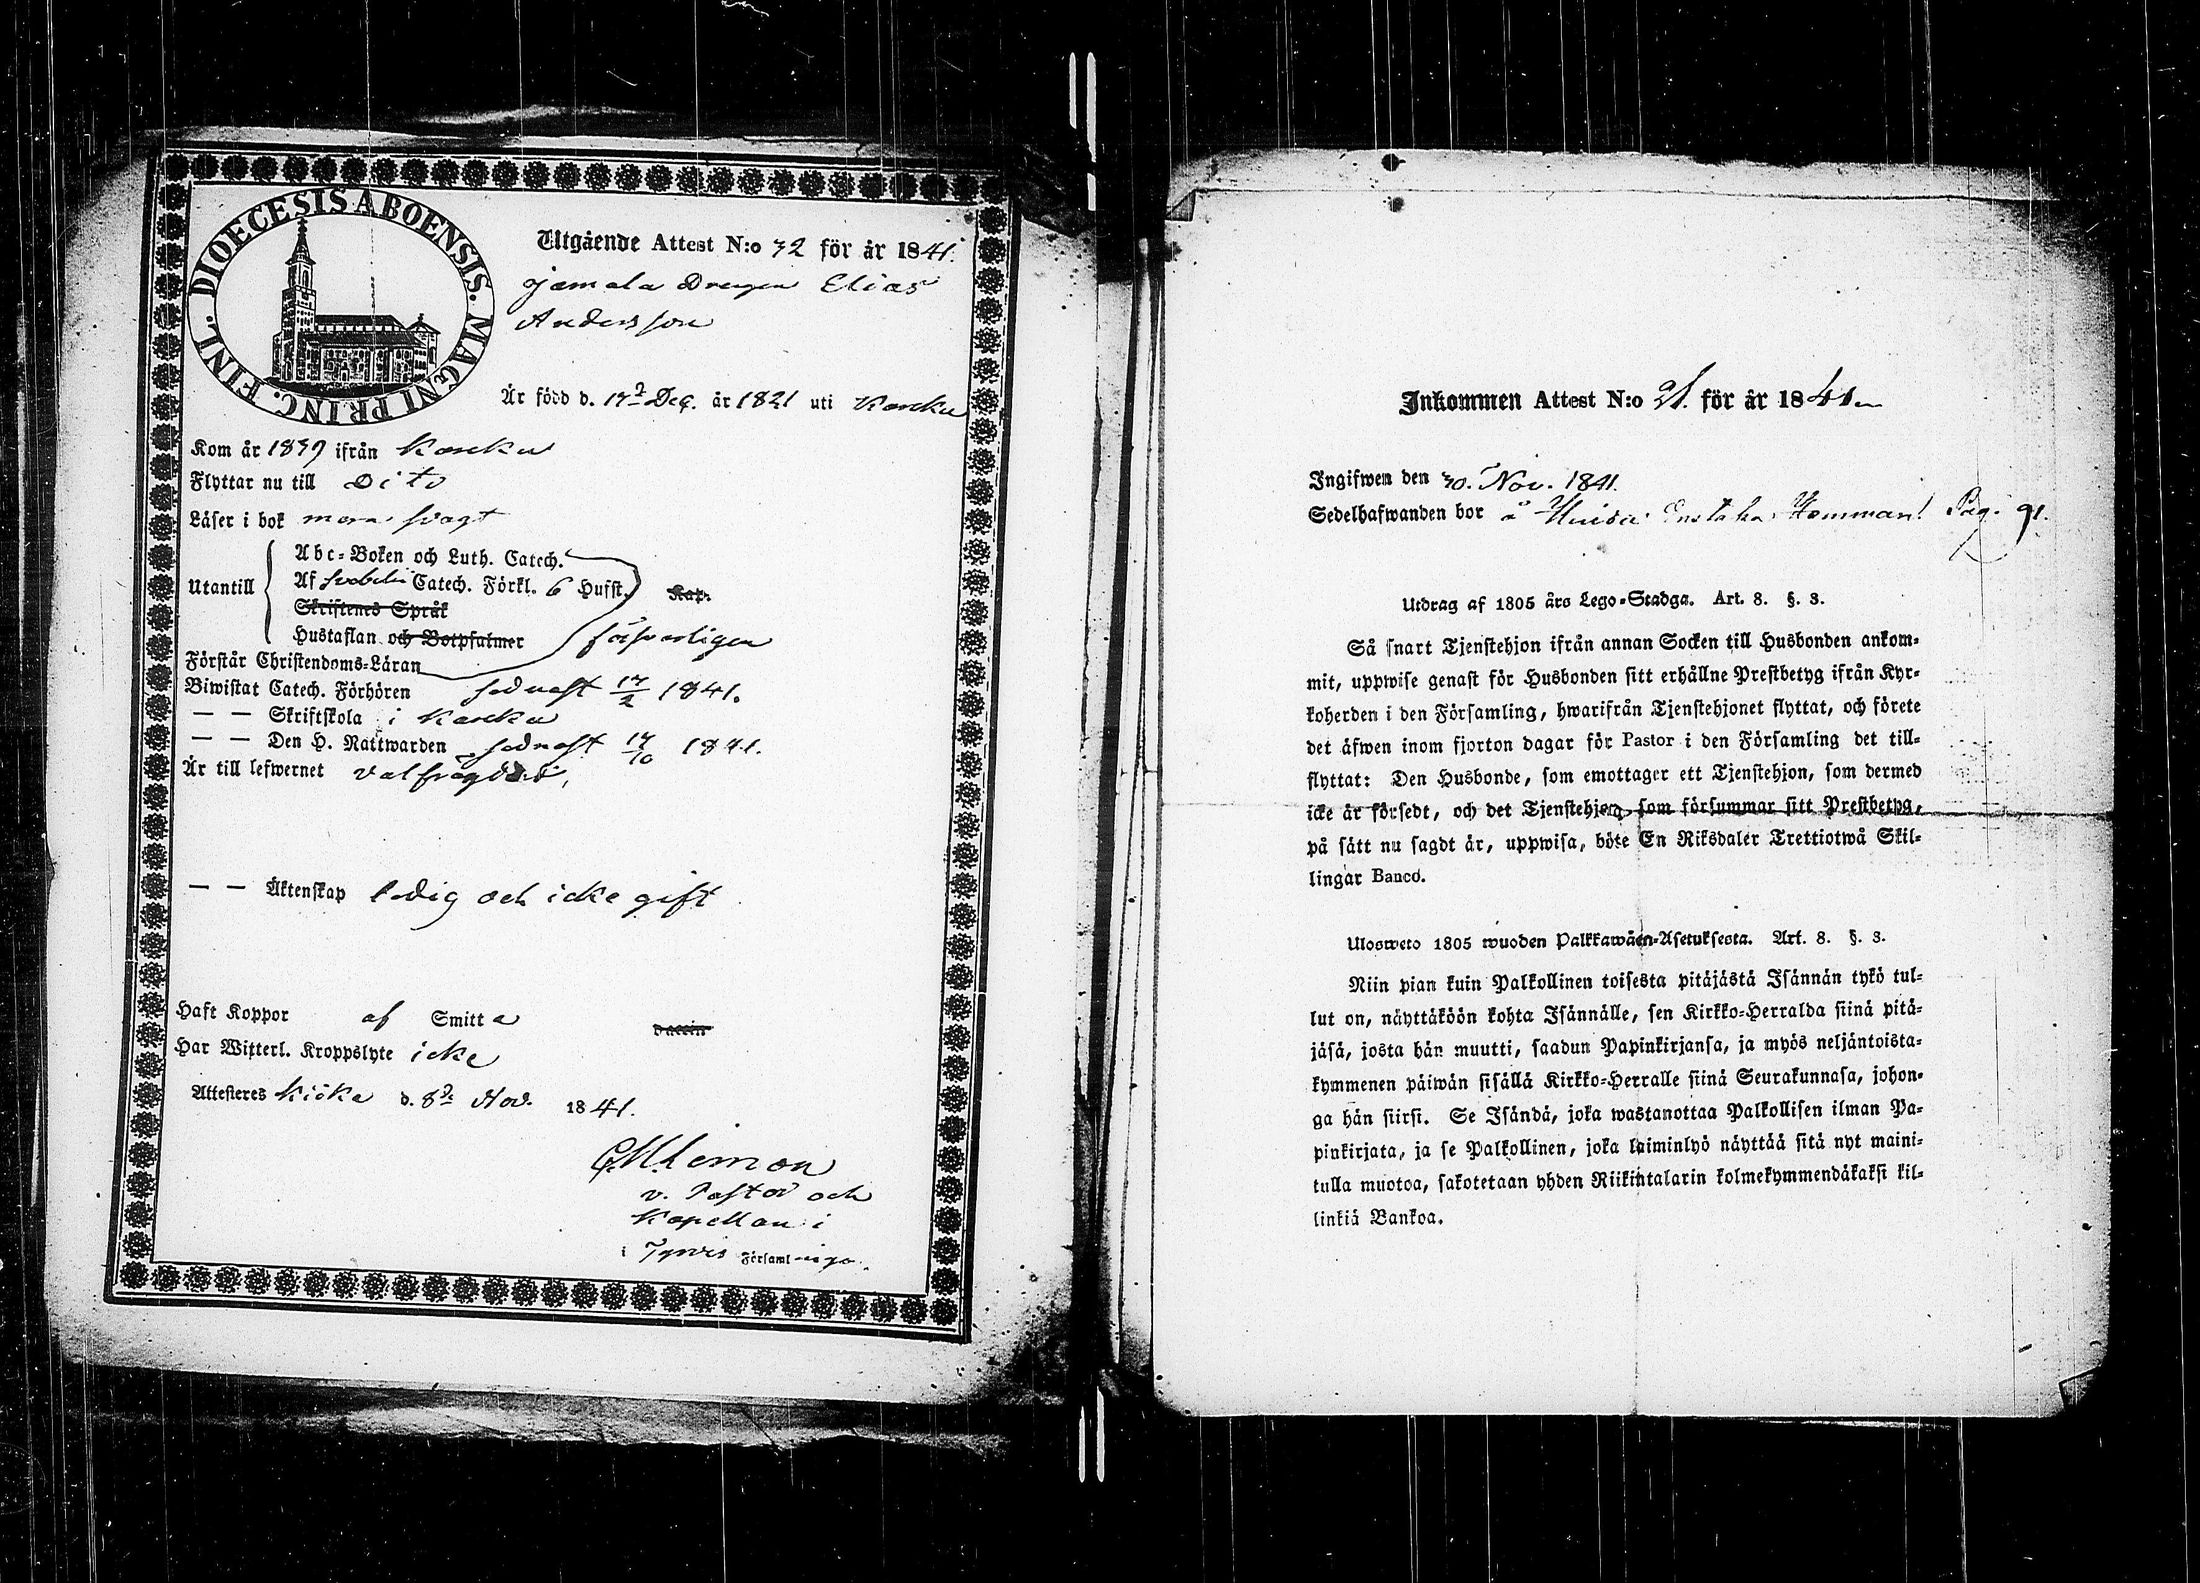 DIOECESIS ABOENSIS. MAGNI PRINC. FINL.
Utgående Attest N:o 32 för år 1841.
gamala Drengen Elias
Andersson
Är född d. 17 Dec. år 1821 uti Karcku
Kom år 1839 ifrån Karcku
Flyttar nu till Dito
Läser i bok svagt
Utantill
Abc-Boken och Luth. Catech.
Af Svebelii Catech. Förkl. 6 Hufst. Kap.
Skriftenes Språk
Hustaflan och Botpsalmer försvarligen
Förstår Christendoms-Läran
Biwistat Catech. Förhören sednast 17/2 1841.
— — Skriftskola i Karcku
— — Den H. Nattwarden sednast 17/10 1841.
Är till lefwernet välfrägdad,
— — Äktenskap ledig och icke gift
Haft Koppor af Smitta vaccin
Har Witterl. Kroppslyte icke
Attesteres Kiika d. 8de Nov. 1841.
v. Pastor och
Kapellan i
i Tyrvis Församlinga.
Inkommen Attest N:o 21. för år 1841
Ingifwen den 30. Nov. 1841.
Sedelhafwanden bor å Enstaka Hemman! Pag. 91.
Utdrag af 1805 års Lego-Stadga. Art. 8. §. 3.
Så snart Tjenstehjon ifrån annan Socken till Husbonden ankom-
mit, uppwise genast för Husbonden sitt erhållne Prestbetyg ifrån Kyr-
koherden i den Församling, hwarifrån Tjenstehjonet flyttat, och förete
det äfwen inom fjorton dagar för Pastor i den Församling det till-
flyttat: Den Husbonde, som emottager ett Tjenstehjon, som dermed
icke är försedt, och det Tjenstehjon, som försummar sitt Prestbetyg,
på sätt nu sagdt är, uppwisa, böte En Riksdaler Trettiotwå Skil-
lingar Banco.
Ulosweto 1805 wuoden Palkkawäen-Asetuksesta. Art. 8. §. 3.
Niin pian kuin Palkollinen toisesta pitäjästä Isännän tykö tul-
lut on, näyttäköön kohta Isännälle, sen Kirkko-Herralda siinä pitä-
jäsä, josta hän muutti, saadun Papinkirjansa, ja myös neljäntoista-
kymmenen päiwän sisällä Kirkko-Herralle siinä Seurakunnasa, johon-
ga hän siirsi. Se Isändä, joka wastanottaa Palkollisen ilman Pa-
pinkirjata, ja se Palkollinen, joka laiminlyö näyttää sitä nyt maini-
tulla muotoa, sakotetaan yhden Riikintalarin kolmekymmendäkaksi kil-
linkiä Bankoa.